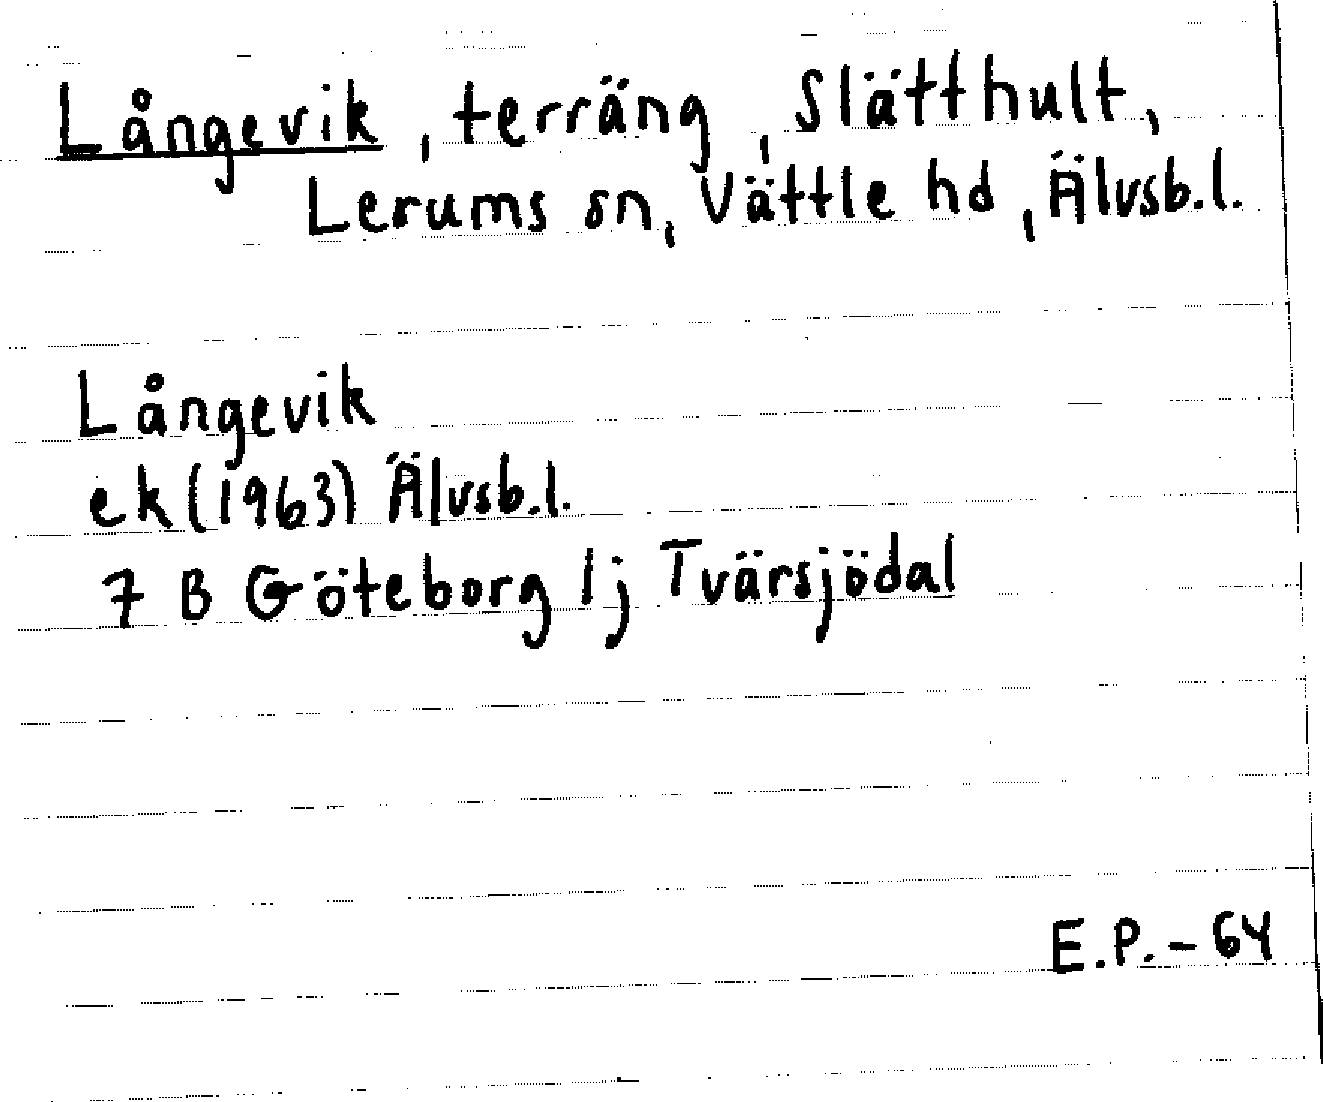 Långevik, terräng, Slätthult,
Lerums sn, Vättle hd, Älvsb.l.
Långevik
ek(1963) Älvsb.l.
7 B Göteborg 1j Tvärsjödal
E.P.-64